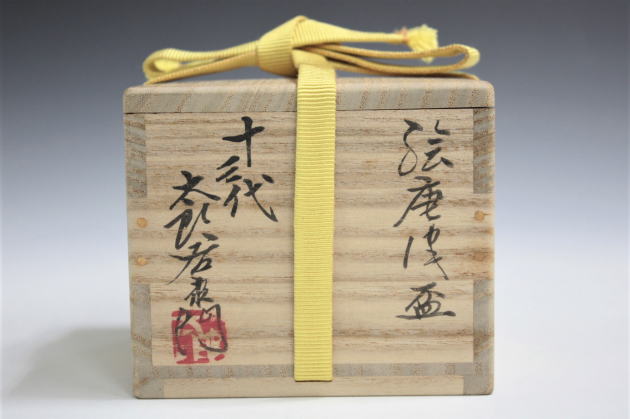 絵唐津盃
十三代
太郎右衛門